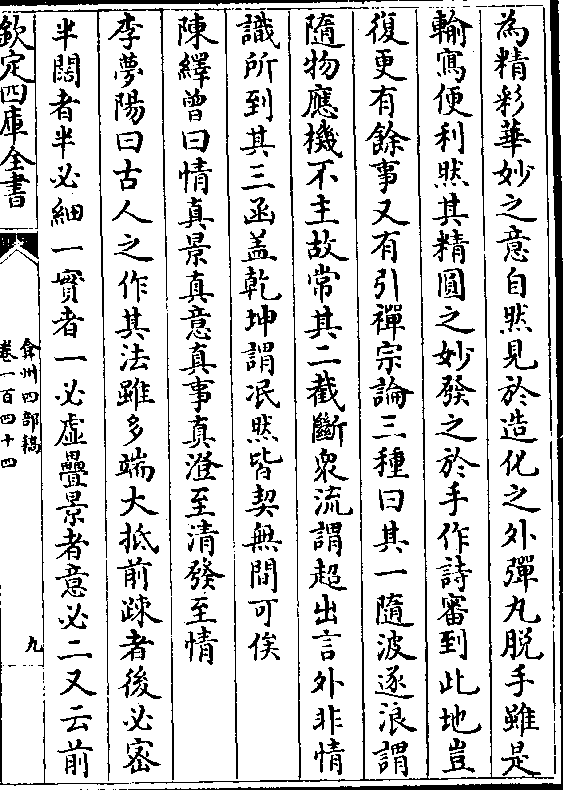 為精彩華妙之意自然見於造化之外彈丸脱手雖是
輸寫便利然其精圓之妙發之於手作詩審到此地豈
復更有餘事又有引禪宗論三種曰其一隨波逐浪謂
隨物應機不主故常其二截斷衆流謂超出言外非情
識所到其三函盖乾坤謂泯然皆契無間可俟
陳繹曾曰情真景真意真事真澄至清發至情
李夢陽曰古人之作其法雖多端大抵前疎者後必宻
半闊者半必細一實者一必虛疊景者意必二又云前
欽定四庫全書
弇州四部稿
卷一百四十四
九